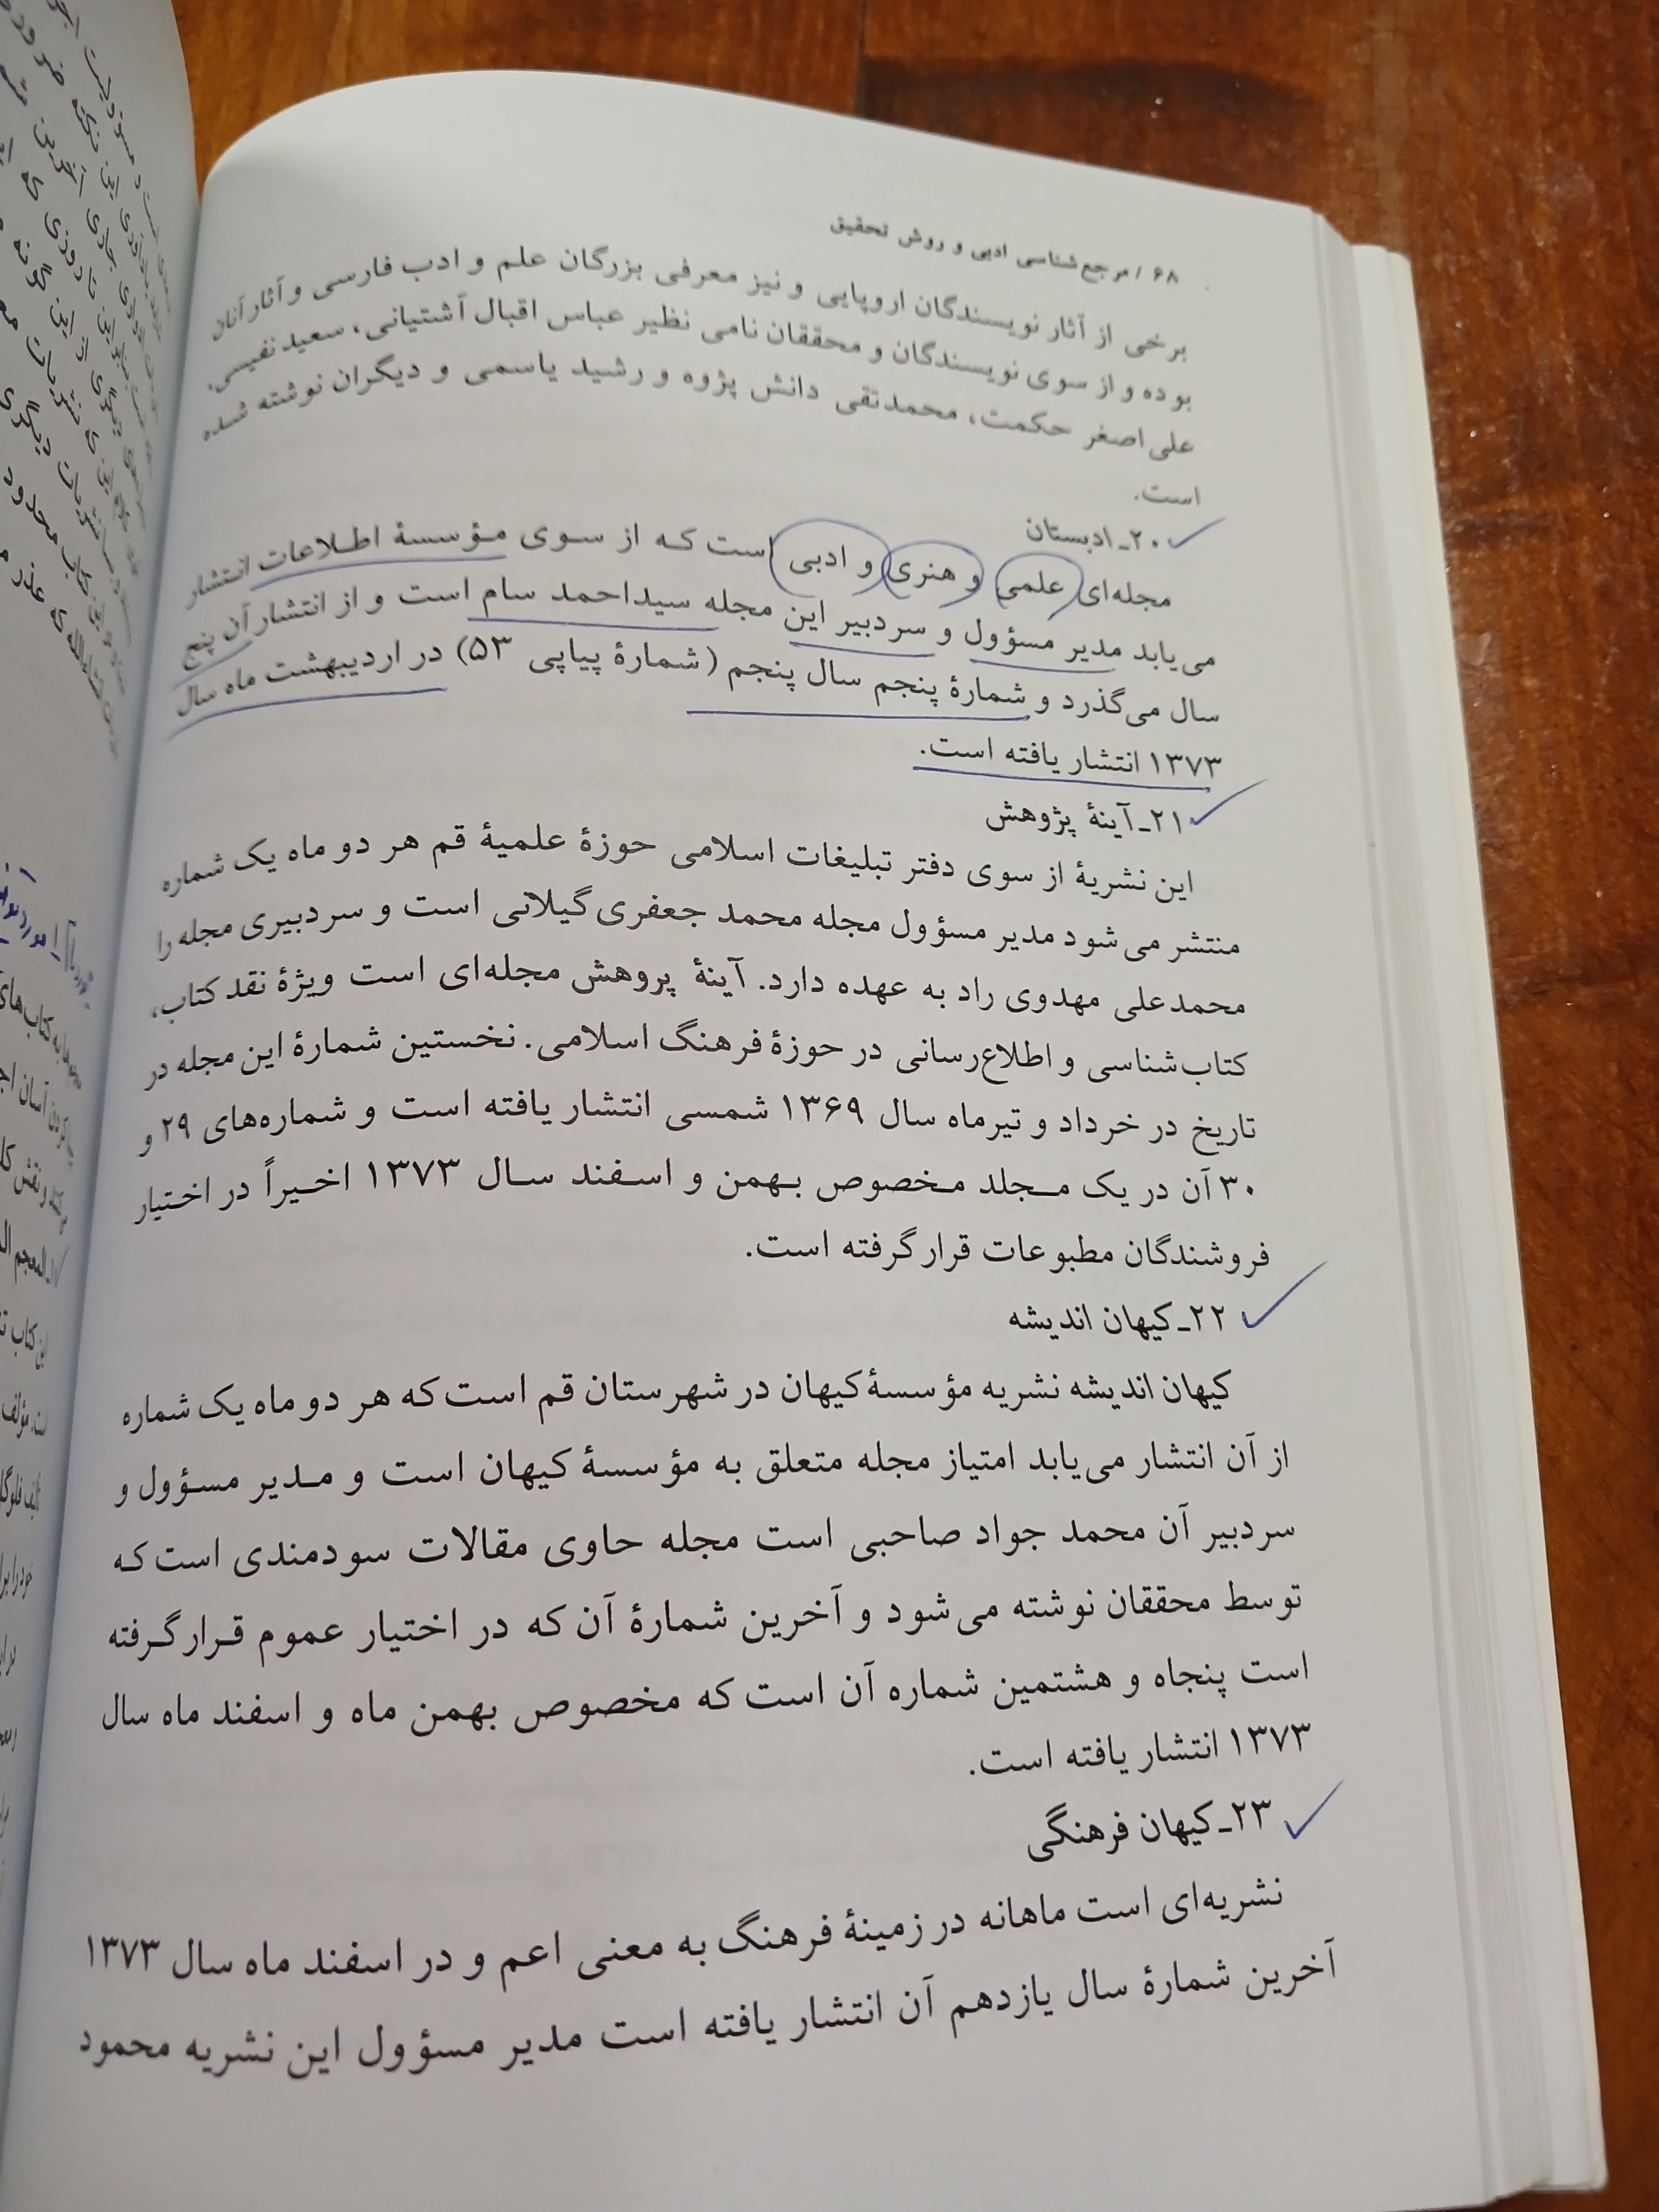 ۶۸ / مرجع‌شناسی ادبی و روش تحقیق
برخی از آثار نویسندگان اروپایی و نیز معرفی بزرگان علم و ادب فارسی و آثار آنان
بوده و از سوی نویسندگان و محققان نامی نظیر عباس اقبال آشتیانی، سعید نفیسی،
علی‌اصغر حکمت، محمدتقی دانش پژوه و رشید یاسمی و دیگران نوشته شده
است.
۲۰ـ ادبستان
مجله‌ای علمی و هنری و ادبی است که از سوی مؤسسهٔ اطلاعات انتشار
می‌یابد مدیر مسؤول و سردبیر این مجله سیداحمد سام است و از انتشار آن پنج
سال می‌گذرد و شمارهٔ پنجم سال پنجم (شمارهٔ پیاپی ۵۳) در اردیبهشت ماه سال
۱۳۷۳ انتشار یافته است.
۲۱ـ آینهٔ پژوهش
این نشریهٔ از سوی دفتر تبلیغات اسلامی حوزهٔ علمیهٔ قم هر دو ماه یک شماره
منتشر می‌شود مدیر مسؤول مجله محمد جعفری گیلانی است و سردبیری مجله را
محمدعلی مهدوی راد به عهده دارد. آینهٔ پروهش مجله‌ای است ویژهٔ نقد کتاب،
کتاب‌شناسی و اطلاع‌رسانی در حوزهٔ فرهنگ اسلامی. نخستین شمارهٔ این مجله در
تاریخ در خرداد و تیرماه سال ۱۳۶۹ شمسی انتشار یافته است و شماره‌های ۲۹ و
۳۰ آن در یک مجلد مخصوص بهمن و اسفند سال ۱۳۷۳ اخیراً در اختیار
فروشندگان مطبوعات قرار گرفته است.
۲۲ـ کیهان اندیشه
کیهان اندیشه نشریه مؤسسهٔ کیهان در شهرستان قم است که هر دو ماه یک شماره
از آن انتشار می‌یابد امتیاز مجله متعلق به مؤسسهٔ کیهان است و مدیر مسؤول و
سردبیر آن محمد جواد صاحبی است مجله حاوی مقالات سودمندی است که
توسط محققان نوشته می‌شود و آخرین شمارهٔ آن که در اختیار عموم قرار گرفته
است پنجاه و هشتمین شماره آن است که مخصوص بهمن ماه و اسفند ماه سال
۱۳۷۳ انتشار یافته است.
۲۳ـ کیهان فرهنگی
نشریه‌ای است ماهانه در زمینهٔ فرهنگ به معنی اعم و در اسفند ماه سال ۱۳۷۳
آخرین شمارهٔ سال یازدهم آن انتشار یافته است مدیر مسؤول این نشریه محمود